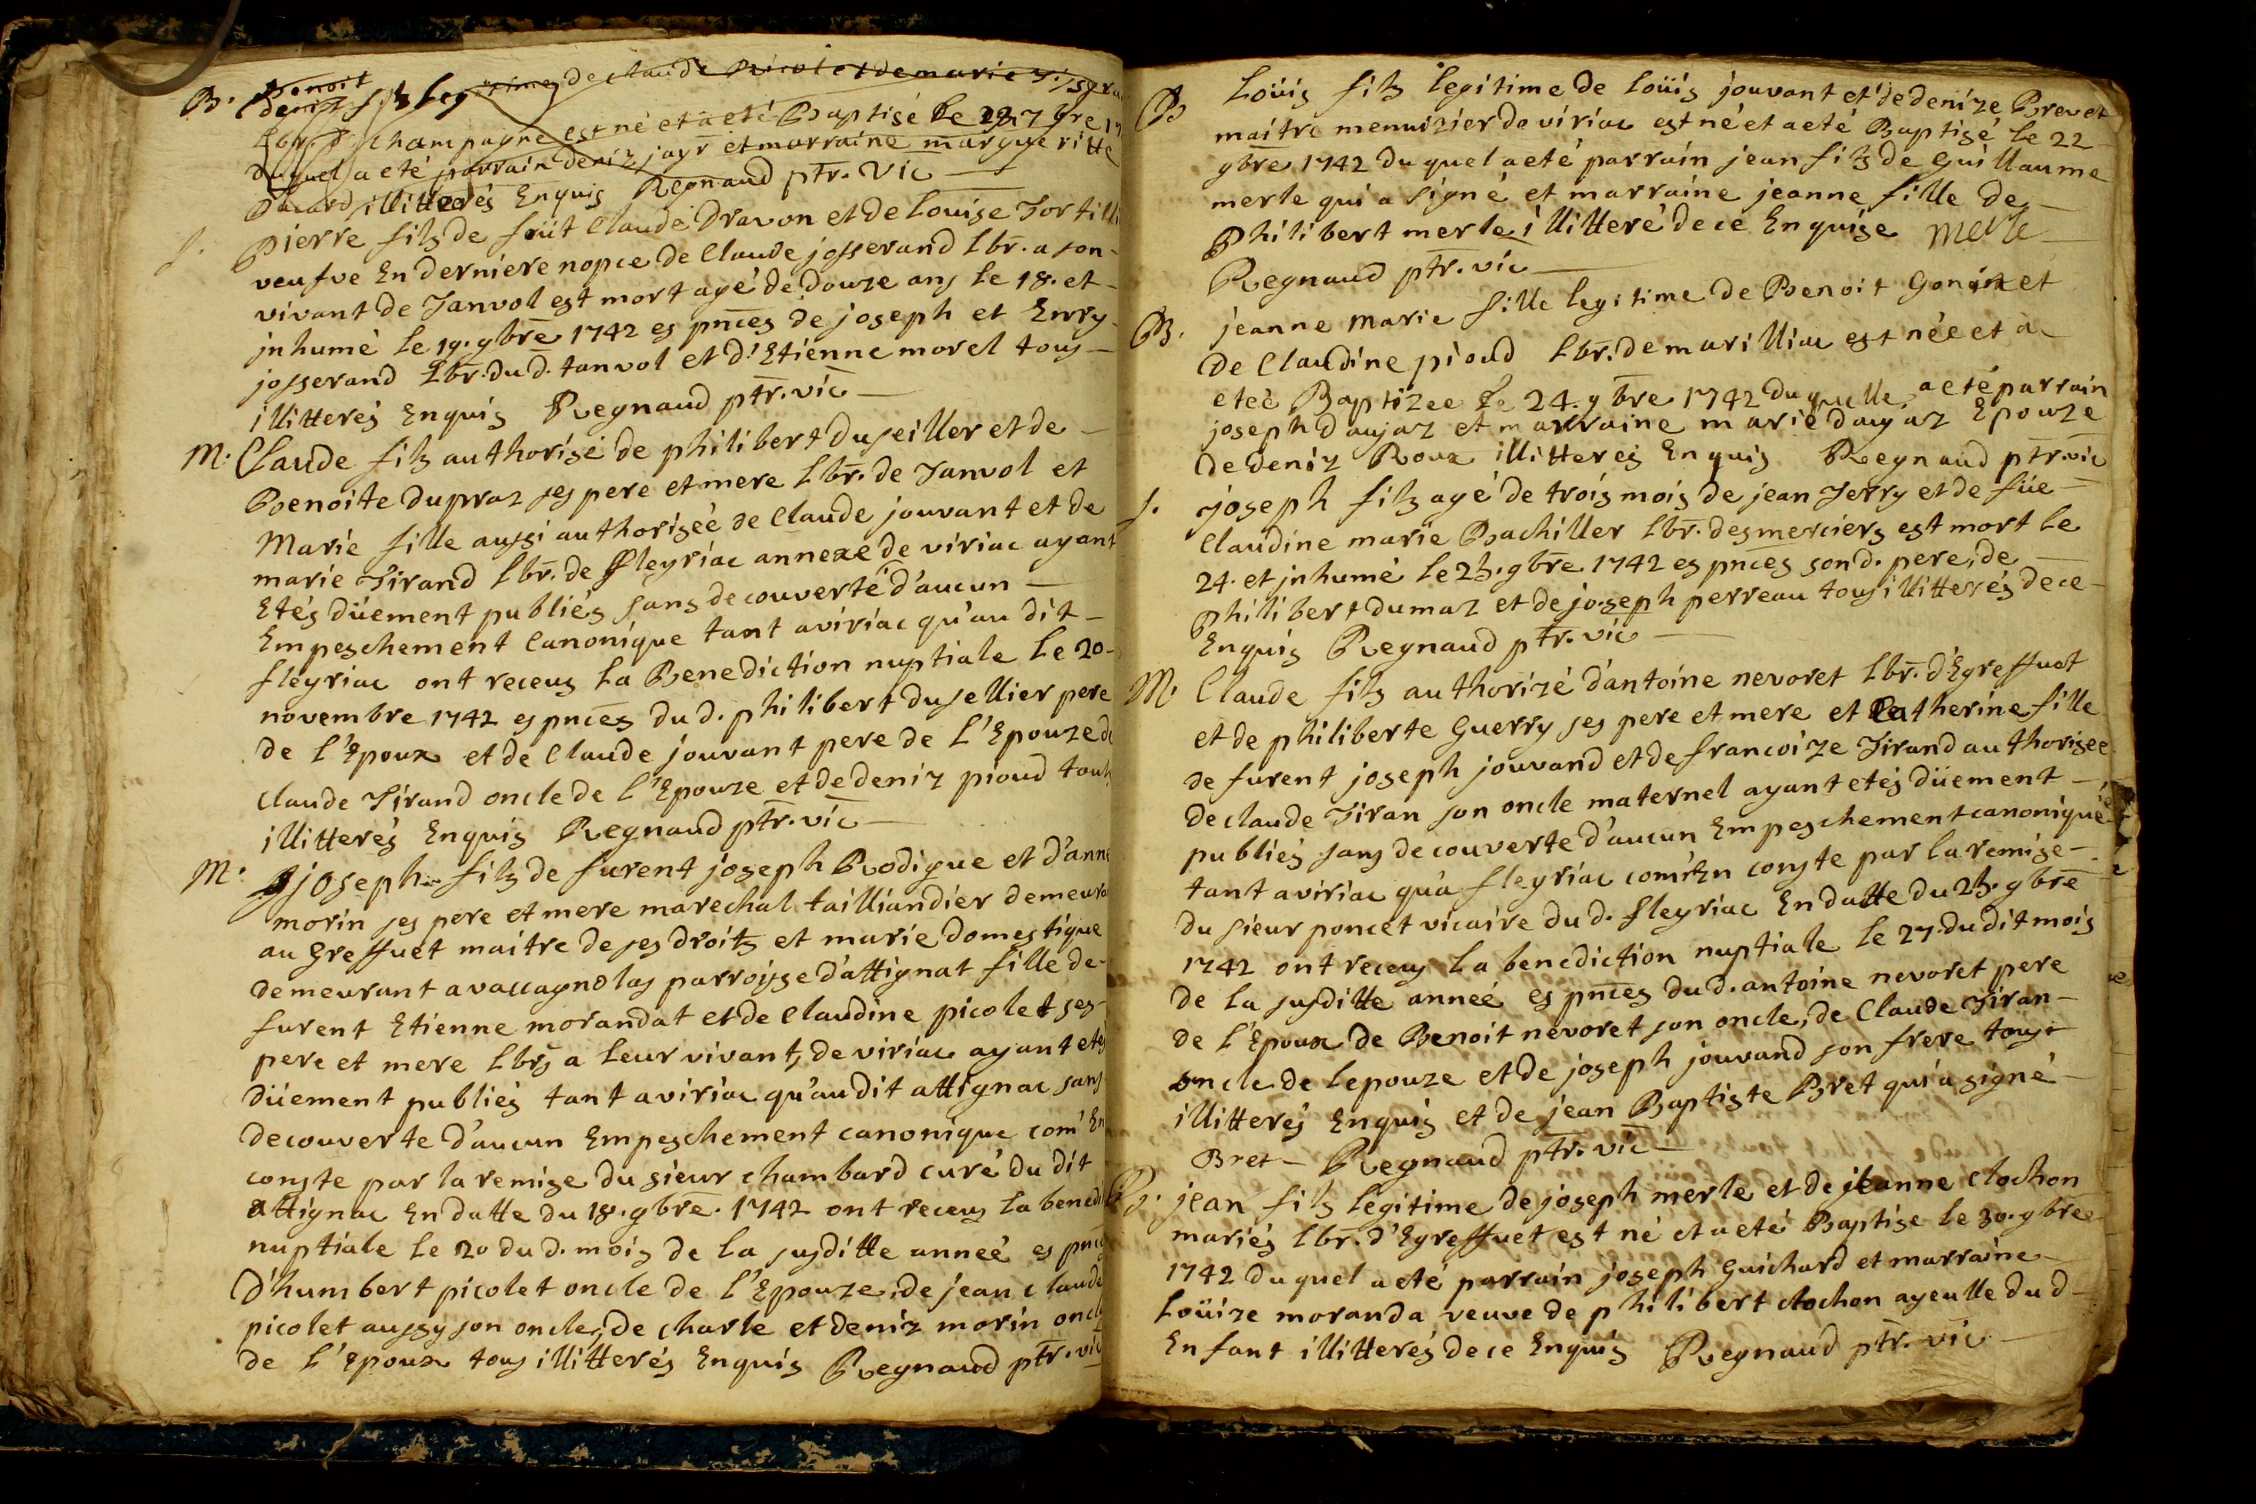 B. Benoit
denis fils legitime de claude Nicol et de marie
Lbr. d champagne est né et a eté Baptisé le 28. 7bre
duquel a eté parrain deniz jayr et marraine margueritte
illitterés Enquis Regnaud ptr. vic
S. pierre fils de füt Claude Dravon et de Louise
veufve En derniere nopce de Claude josserand Lbr. a son
vivant de Tanvol est mort agé de douze ans le 18. et
jnhumé le 19. 9bre 1742 es pnces de joseph et Enry
josserand Lbr. du d. tanvol et d'Etienne morel tous
illitterés Enquis Regnaud ptr. vic
M. Claude fils authorisé de philibert duseiller et de
Benoite dupraz ses pere et mere Lbr. de Tanvol et
Marie fille aussi authoriseé de Claude jouvant et de
marie Tirand Lbr. de fleyriac annexe de viriac ayant
Etés düement publiés sans decouverte d'aucun
Empeschement Canonique tant a viriac qu'au dit
fleyriac ont receus La Benediction nuptiale le 20
novembre 1742 es pnces du d. philibert dusellier pere
de l'Epoux et de Claude jouvant pere de L'Epouze de
Claude Tirand oncle de l'Epouze et de deniz pioud tous
illitterés Enquis Regnaud ptr. vic
M. joseph fils de furent joseph Rodigue et d'anne
morin ses pere et mere marechal tailliandier demeura
au Greffuet maitre de ses droits et marie domestique
demeurant a vaccagnolas parroisse d'attignat fille de
furent Etienne morandat et de Claudine picolet ses
pere et mere Lbrs a leur vivant, de viriac ayant etés
düement publiés tant a viriac qu'au dit attignac sans
decouverte d'aucun Empeschement canonique com' En
conste par la remise du sieur chambard curé du dit
attignac En datte du 18. 9bre. 1742 ont receus la bened
nuptiale le 20 du d. mois de la susditte anneé es pnces
D'humbert picolet oncle de l'Epouze, de jean claude
picolet aussy son oncle, de charle et deniz morin oncle
de L'Epoux tous illitterés Enquis Regnaud ptr. vic
B Loüis fils legitime de Loüis jouvant et de denize Brevet
maitre menuizier de viriac est né et a eté Baptisé le 22
9bre 1742 du quel a eté parrain jean fils de Guillaume
merle qui a signé et marraine jeanne fille de
Philibert merle illitteré de ce Enquise merle
Regnaud ptr. vic
B. jeanne marie fille legitime de Benoit Gonin et
de Claudine pioud Lbr. de marilliac est née et a
eteé Baptizee le 24. 9bre 1742 du quelle a eté parrain
joseph daujaz et marraine marie daujaz Epouze
de deniz Roux illitterés Enquis Regnaud ptr. vic
S. joseph fils agé de trois mois de jean Terry et de füe
Claudine marie Bachiller Lbr. des merciers est mort le
24. et jnhumé le 25. 9bre 1742 es pnces son d. pere, de
philibert dumaz et de joseph perreau tous illitterés de ce
Enquis Regnaud ptr. vic
M. Claude fils authorizé d'antoine nevoret Lbr. d'Egreffuet
et de philiberte Guerry ses pere et mere et Catherine fille
de furent joseph jouvand et de francoize Tirand authorisee
de claude Tiran son oncle maternel ayant etés düement
publiés sans decouverte d'aucun Empeschement canonique
tant a viriac qu'a fleyriac com'En conste par la remise
du sieur poncet vicaire du d. fleyriac En datte du 25. 9bre
1742 ont receus La benediction nuptiale le 27. du dit mois
de la susditte anneé es pnces du d. antoine nevoret pere
de l'Epoux de Benoit nevoret son oncle, de Claude Tiran
oncle de lepouze et de joseph jouvand son frere tous
illitterés Enquis et de jean Baptiste Bret qui a signé
Bret Regnaud ptr. vic
B. jean fils legitime de joseph merle et de jeanne clochon
mariés Lbr. d'Egreffuet est né et a eté Baptise le 30. 9bre
1742 du quel a eté parrain joseph Guichard et marraine
Loüize moranda veuve de philibert clochon ayeulle du d
Enfant illitterés de ce Enquis Regnaud ptr. vic